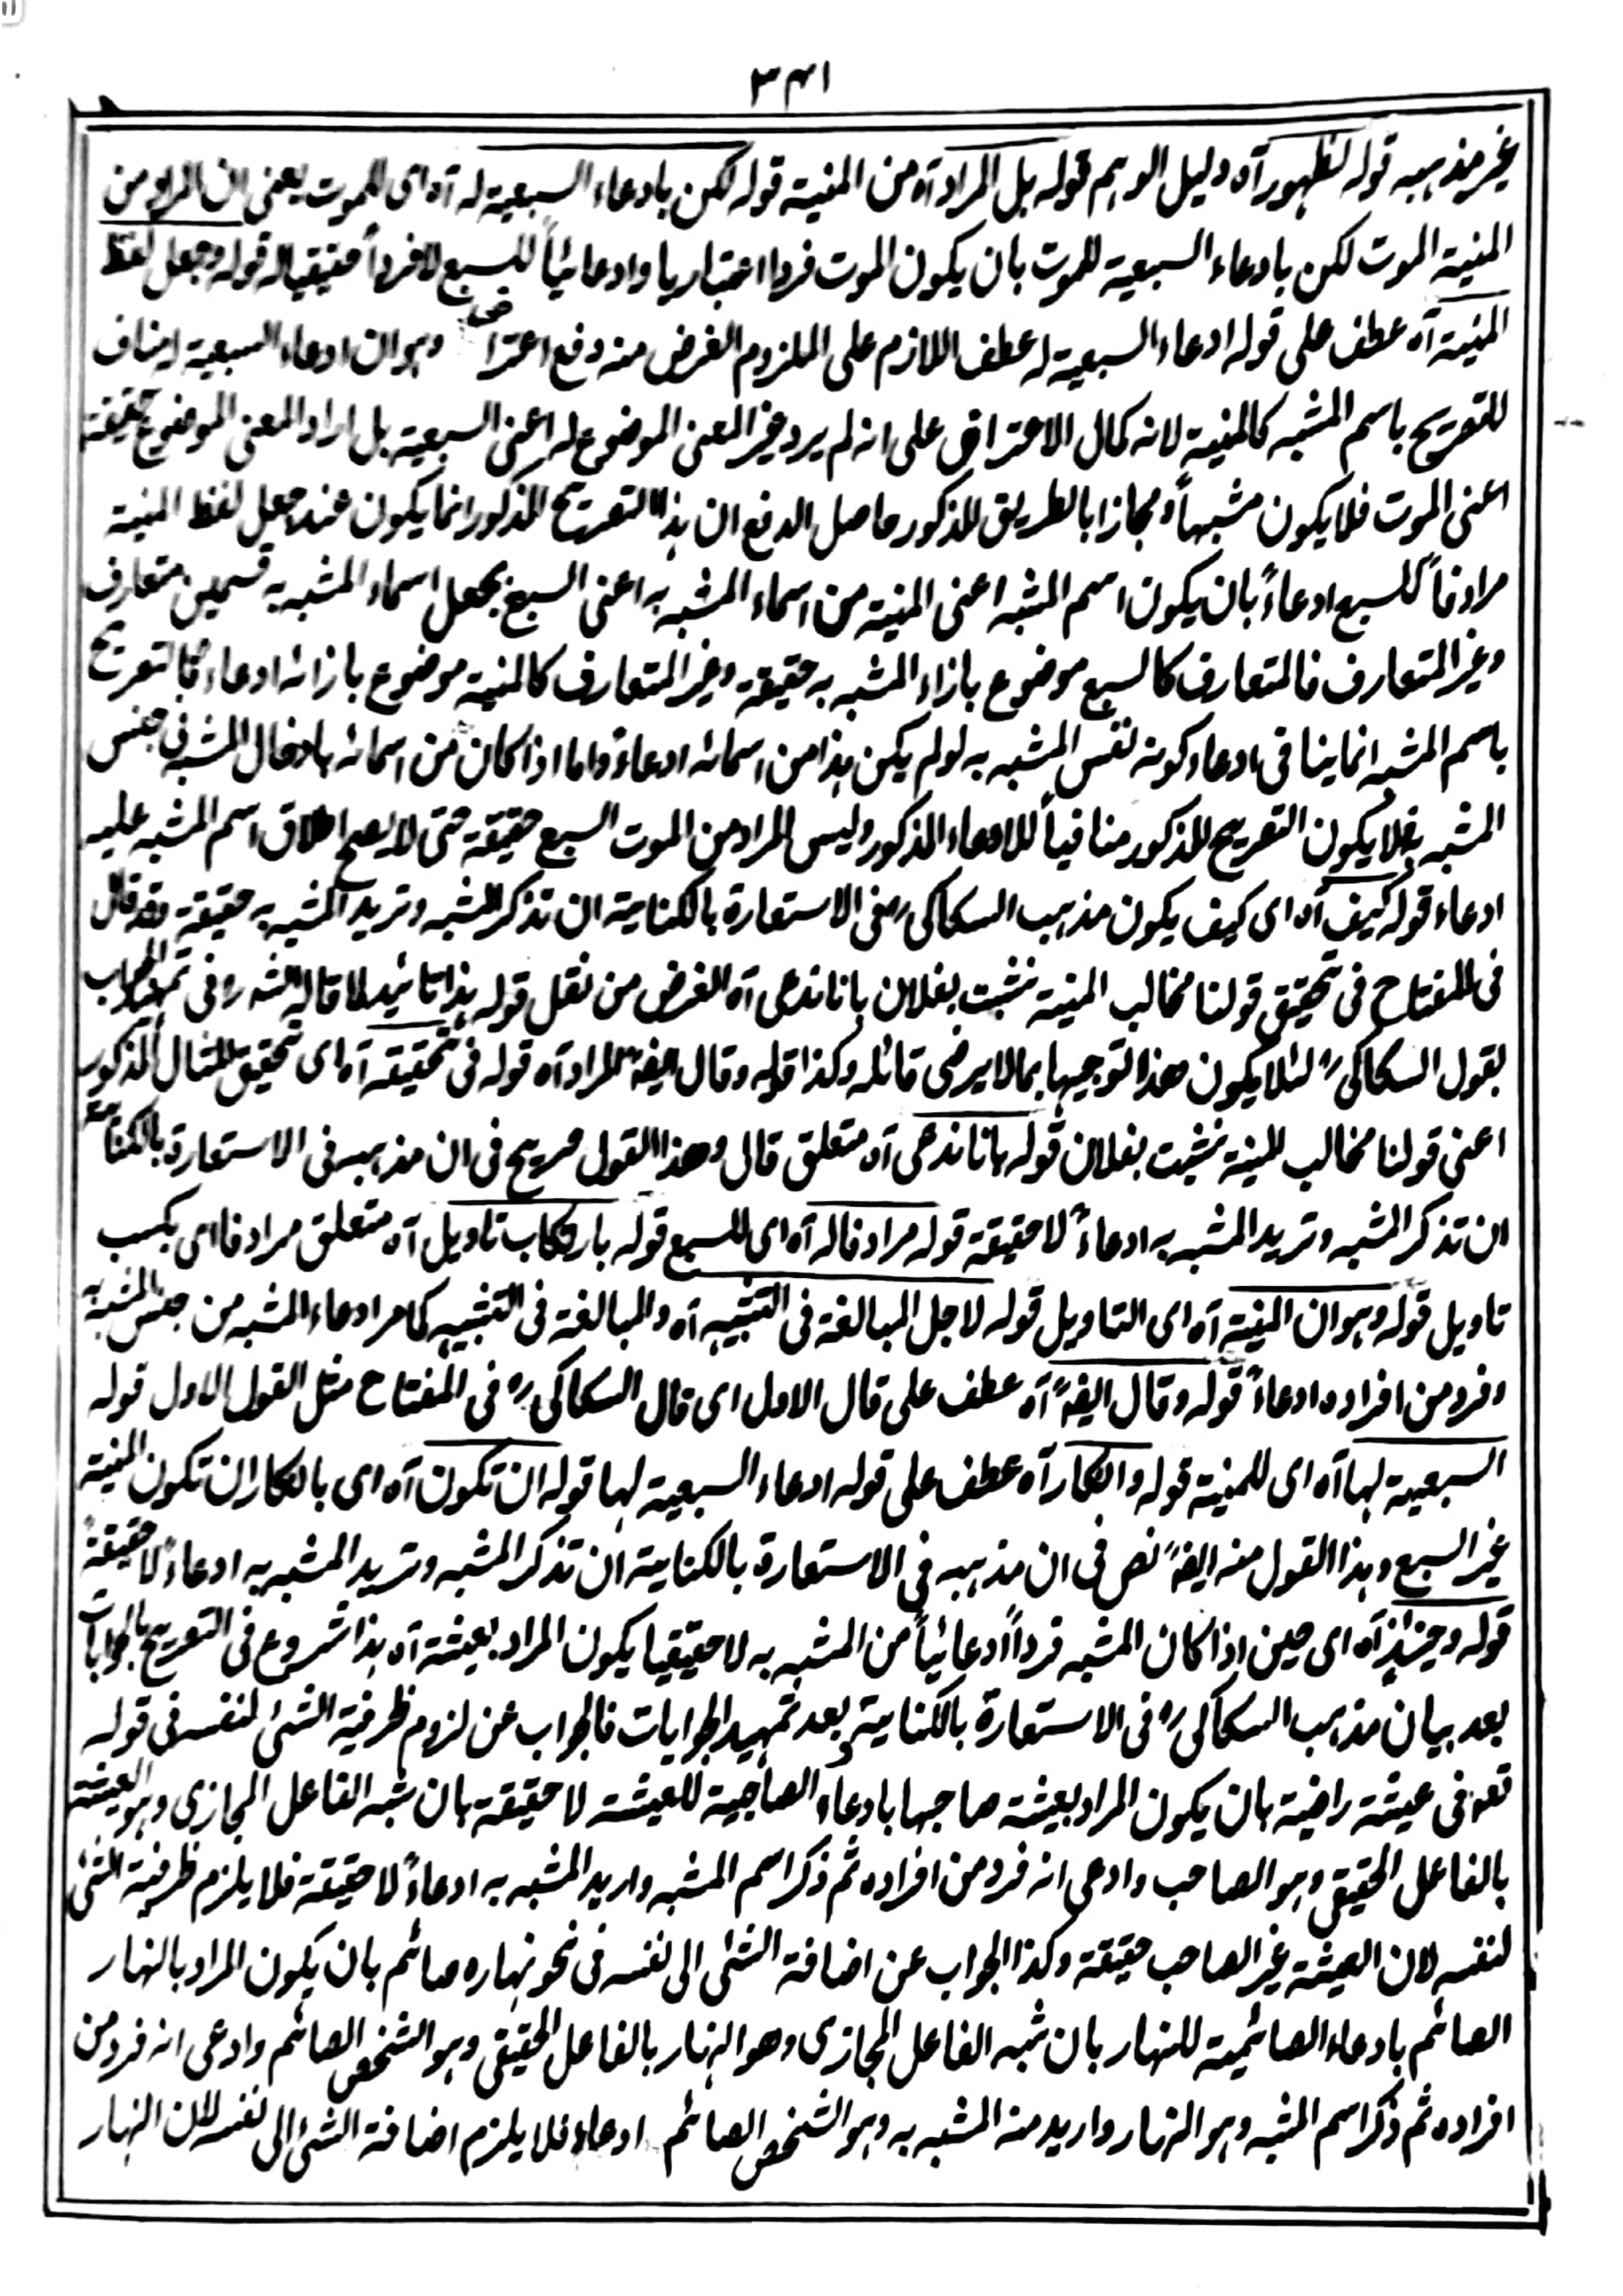 ٣٤١
غير مذهبه قوله لظهور آه دليل الوهم قوله بل المراد آه من المنية قوله لكن بادعاء السبعية له آه اى للموت يعنى ان المراد من
المنية الموت لكن بادعاء السبعية للموت بان يكون الموت فردا اعتباريا وادعائياً للسبع لا فرداً حقيقيا له قوله وجعل لفظ
المنية آه عطف على قوله ادعاء السبعية له عطف اللازم على الملزوم الغرض منه دفع اعتراض وهو ان ادعاء السبعية ينافى
للتصريح باسم المشبه كالمنية لانه كمال الاعتراف على انه لم يرد غير المعنى الموضوع له اعنى السبعية بل اراد المعنى الموضوع حقيقة
اعنى الموت فلا يكون مشبهاً ومجازا بالطريق المذكور حاصل الدفع ان هذا التصريح المذكور انما يكون عند جعل لفظ المنية
مرادفاً للسبع ادعاءً بان يكون اسم المشبه اعنى المنية من اسماء المشبه به اعنى السبع بجعل اسماء المشبه به قسمين متعارف
وغير المتعارف فالمتعارف كالسبع موضوع بازاء المشبه به حقيقة وغير المتعارف كالمنية موضوع بازائه ادعاء فالتصريح
باسم المشبه انما ينافى ادعاء كونه نفس المشبه به لو لم يكن هذا من اسمائه ادعاءً واما اذا كان من اسمائه بادخال المشبه فى جنس
المشبه به فلا يكون التصريح المذكور منافياً للادعاء المذكور وليس المراد من الموت السبع حقيقة حتى لا يصح اطلاق اسم المشبه عليه
ادعاء قوله كيف آه اى كيف يكون مذهب السكاكى رح فى الاستعارة بالكناية ان تذكر المشبه وتريد المشبه به حقيقة وقد قال
فى المفتاح فى تحقيق قولنا مخالب المنية نشبت بفلان بانا ندعى آه الغرض من نقل قوله هذا تائيد لما قاله الشه رح فى تمهيد الجواب
بقول السكاكى رح لئلا يكون هذا توجيها بما لا يرضى قائله وكذا قوله وقال ايضاً المراد آه قوله فى تحقيقه آه اى تحقيق المثال المذكور
اعنى قولنا مخالب المنية نشبت بفلان قوله بانا ندعى آه متعلق قال وهذا القول صريح فى ان مذهبه فى الاستعارة بالكناية
ان تذكر المشبه وتريد المشبه به ادعاءً لا حقيقة قوله مرادفا له آه اى للسبع قوله بارتكاب تاويل آه متعلق مرادفا اى بكسب
تاويل قوله وهو ان المنية آه اى التاويل قوله لاجل المبالغة فى التشبيه آه والمبالغة فى التشبيه كما مر ادعاء المشبه من جنس المشبه به
وفرد من افراده ادعاءً قوله وقال ايضاً آه عطف على قال الاول اى قال السكاكى رح فى المفتاح مثل القول الاول قوله
السبعية لها آه اى للمنية قوله وانكار آه عطف على قوله ادعاء السبعية لها قوله ان تكون آه اى بانكار ان تكون المنية
غير السبع وهذا القول منه ايضاً نص فى ان مذهبه فى الاستعارة بالكناية ان تذكر المشبه وتريد المشبه به ادعاءً لا حقيقةً
قوله وحينئذ آه اى حين اذا كان المشبه فرداً ادعائياً من المشبه به لا حقيقيا يكون المراد بعيشة آه هذا شروع فى التصريح بالجوابات
بعد بيان مذهب السكاكى رح فى الاستعارة بالكناية وبعد تمهيد الجوابات فالجواب عن لزوم ظرفية الشئ لنفسه فى قوله
تعه فى عيشة راضية بان يكون المراد بعيشة صاحبها بادعاء الصاحبية للعيشة لا حقيقة بان شبه الفاعل المجازى وهو العيشة
بالفاعل الحقيقى وهو الصاحب وادعى انه فرد من افراده ثم ذكر اسم المشبه واريد المشبه به ادعاءً لا حقيقة فلا يلزم ظرفية الشئ
لنفسه لان العيشة غير الصاحب حقيقة وكذا الجواب عن اضافة الشئ الى نفسه فى نحو نهاره صائم بان يكون المراد بالنهار
الصائم بادعاء الصائمية للنهار بان شبه الفاعل المجازى وهو النهار بالفاعل الحقيقى وهو الشخص الصائم وادعى انه فرد من
افراده ثم ذكر اسم المشبه وهو النهار واريد منه المشبه به وهو الشخص الصائم ادعاء فلا يلزم اضافة الشئ الى نفسه لان النهار